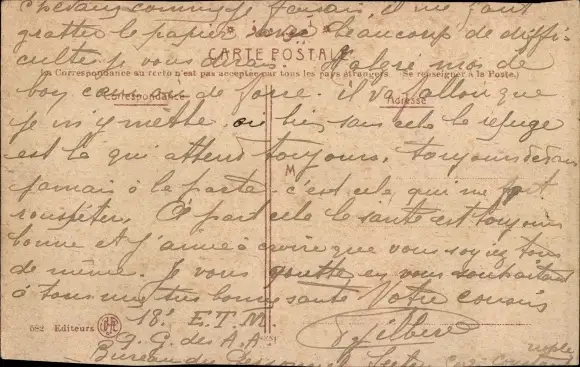 je faisais, il me faut
gratter le papier avec beaucoup de diffi-
CARTE POSTALE
culté je vous dirais. Malgré moi de
(La Correspondance au recto n'est pas acceptée par tous les pays étrangers. (Se renseigner à la Poste.)
Correspondance
Adresse
bon cœur de force. il va falloir que
je m'y mette ou bien sans cela le refuge
est là qui attend toujours. toujours dedans
jamais à la porte c'est cela qui me fait
rouspéter. A part cela la santé est toujours
bonne et j'aime à croire que vous soyez tous
de même. Je vous quitte en vous souhaitant
à tous une très bonne santé Votre cousin
582 Editeurs
18e E.T.M.
G. G. des A.A.
Bureau du